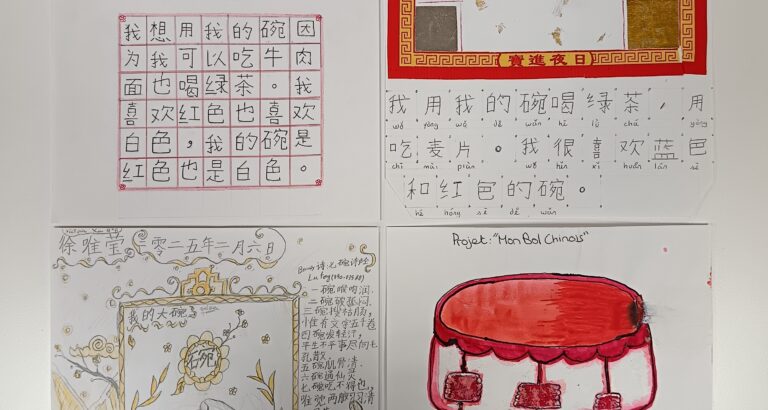 我想用我的碗因
为我可以吃牛肉
面也喝绿茶。我
喜欢红色也喜欢
白色，我的碗是
红色也是白色。
日夜進寶
我用我的碗喝绿茶，用
wǒ yòng wǒ dē wǎn hē lǜ chá yòng
吃麦片。我很喜欢蓝色
chī mài piàn wǒ hěn xǐ huān lán sè
和红色的碗。
hé hóng sè dē wǎn
徐雅莹 二零二五年二月六日
我的大碗
碗
诗：七碗诗
一碗喉吻润，
二碗破孤闷，
三碗搜枯肠，
惟有文字五千卷
四碗发轻汗，
平生不平事尽向毛
孔散，
五碗肌骨清，
六碗通仙灵，
七碗吃不得也，
唯觉两腋习习清
Projet: "Mon Bol Chinois"